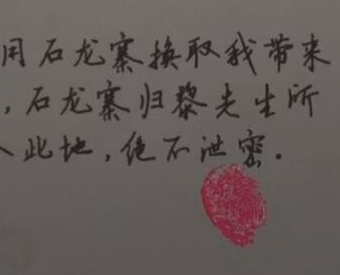 用石龙寨换取我带来
,石龙寨归黎先生所
入此地,绝不泄密.